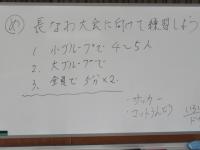 め 長なわ大会に向けて練習しよう
1. 小グループで 4〜5人
2. 大グループで
3. 全員で 5分×2.
・サッカー